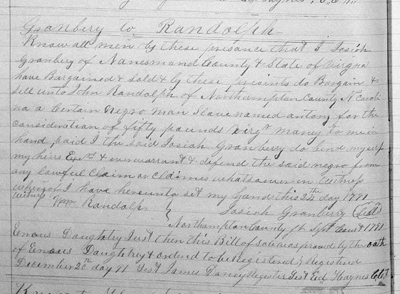 Granbery to Randolph
Know all men by these presance that I Josiah
Granbery of Nanesmand County & State of Virgna
have Bargained & sold & by these presints do Bargain &
sell unto John Randolph of Northampton County N Caroli
na a Certain negro man Slave named antony for the
Consideration of fifty pounds Virga money to me in
hand paid I the said Josiah Granbery do bind myself
my heirs Exrs & warrant & defend the said negro from
any lawful Claim or Claimes whatsoever in witness
whereof I have hereunto set my hand this 24 day 1781
Wm Randolph } Josiah Granbery (Seal)
Northampton County ss Sept Court 1781
Then this Bill of sale was proved by the oath
of Emoas Daughtrey & ordred to be Registered; Registered
December 20th day 81 Test James Dancy Register Test Ed Haynes C.C.